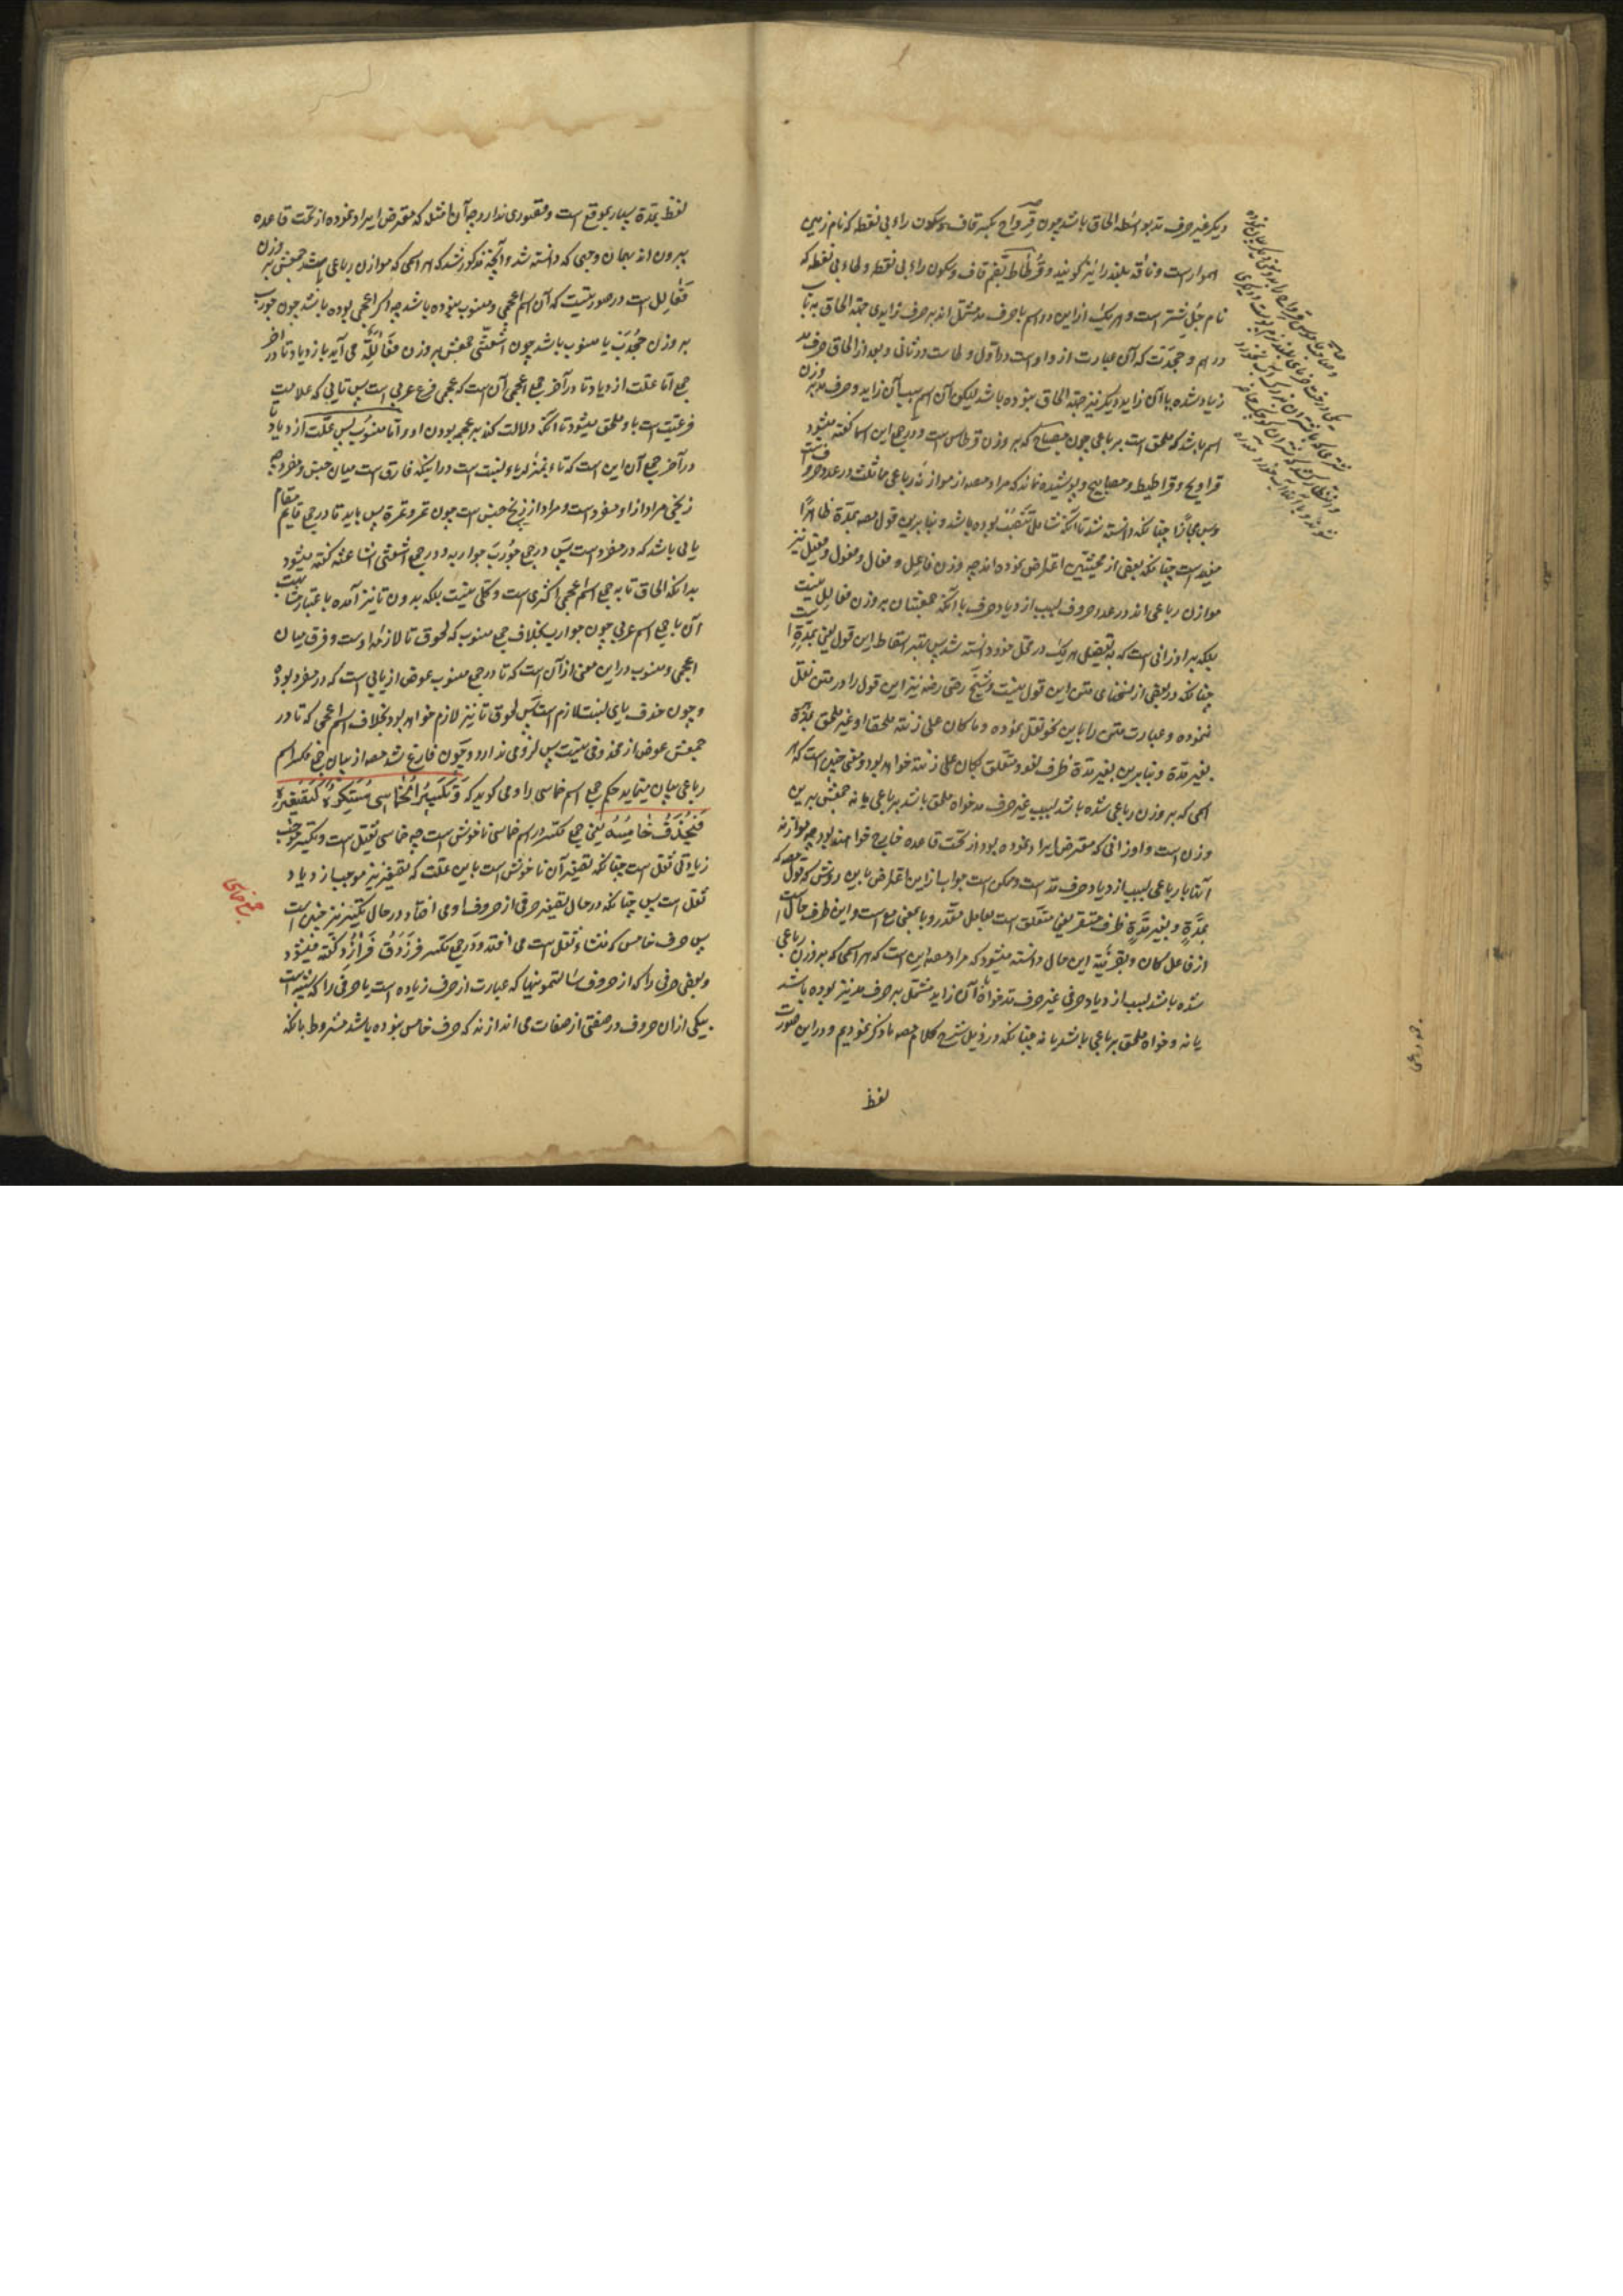 دیکر غیر حرف مد بواسطه الحاق باشد چون قرواح بکسر قاف و سکون راء بی نقطه که نام زمین
هموار است و ناقه بلند را نیز کویند و قرطاط بضم قاف و سکون راء بی نقطه و طاء بی نقطه که
نام جل شتر است و هر یک از این دو اسم با حرف مد مشتمل اند بر حرف زایدی جهة الحاق به
زیاد شده با آن زاید دیکر نیز جهة الحاق نبوده باشد لیکن آن اسم بسبب آن زاید و حرف مد بر وزن
اسم باشد که ملحق است بر باعی چون مصباح که بر وزن قرطاس است و در جمع این اسما کفته میشود
قراویح و قراطیط و مصابیح و پوشیده نماند که مراد مصه از موازنه رباعی مماثلت در عدد حروف است
و بس مجازا چنانکه دانسته شد تا آنکه شامل بوده باشد و بنابرین قول مصه بمدة ظاهرا
مفید است چنانکه بعضی از محشیین اعتراض نموده اند چه وزن فاعل و فعال و فعول و فعیل نیز
موازن رباعی اند در عدد حروف بسبب ازدیاد حرف با آنکه جمعشان بر وزن فعالل نیست
بلکه بر اوزانی است که بتفصیل هر یک در محل خود دانسته شد پس بهتر اسقاط این قول یعنی بمدة است
چنانکه در بعضی از نسخهای متن این قول نیست و شیخ رضی رضه نیز این قول را در متن نقل
ننموده و عبارت متن را باین نحو نقل نموده و ما کان علی زنته ملحقا او غیر ملحق بمدة
بغیر مدة و بنابرین بغیر مدة ظرف لغو و متعلق بکان علی زنته خواهد بود و معنی چنین است که هر
اسمی که بر وزن رباعی شده باشد بسبب غیر حرف مد خواه ملحق باشد برباعی یا نه جمعش برین
وزن است و اوزانی که معترض ایراد نموده بود از تحت قاعده خارج خواهند بود چه موازنه
آنها با رباعی بسبب ازدیاد حرف مد است و ممکن است جواب از این اعتراض باین روش که قول مصه که
بمدة و بغیر مدة ظرف مستقر یعنی متعلق است بعامل مقدر و با بمعنی مع است و این ظرف حال است
از فاعل کان و بقرینه این حال دانسته میشود که مراد مصه این است که هر اسمی که بر وزن رباعی
شده باشد بسبب ازدیاد حرفی غیر حرف مد خواه آن زاید مشتمل بر حرف مد نیز بوده باشد
یا نه و خواه ملحق برباعی باشد یا نه چنانکه در ذیل شرح کلام مصه ما ذکر نمودیم و در این صورت
لفظ
لفظ بمدة بسیار بموقع است و قصوری ندارد چه آن امثله که معترض ایراد نموده از تحت قاعده
بیرون اند بهمان وجهی که دانسته شد و آنچه مذکور شد که هر اسمی که موازن رباعی باشد جمعش بر وزن
فعالل است در صورتیست که آن اسم اعجمی و منسوب نبوده باشد چه اکر اعجمی بوده باشد چون جورب
بر وزن یا منسوب باشد چون اشعثی جمعش بر وزن فعاللة می آید بازدیاد تا در آخر
جمع اما علت ازدیاد تا در آخر جمع اعجمی آن است که عجمی فرع عربی است پس تایی که علامت
فرعیت است باو ملحق میشود تا آنکه دلالت کند بر عجمه بودن او و اما منسوب پس علت ازدیاد تا
در آخر جمع آن این است که تاء بمنزله یاء نسبت است در اینکه فارق است میان جنس و مفرد چه
زنجی مراد از او مفرد است و مراد از زنج جنس است چون تمر و تمرة پس باید تا در جمع قایم مقام
یایی باشد که در مفرد است پس در جمع جورب جواربه و در جمع اشعثی اشاعثه کفته میشود
بدانکه الحاق تا به جمع اسم اعجمی اکثری است و کلی نیست بلکه بدون تا نیز آمده باعتبار مشابهت
آن با جمع اسم عربی چون جوارب بخلاف جمع منسوب که لحوق تا لازمه اوست و فرق میان
اعجمی و منسوب در این معنی از آن است که تا در جمع منسوب عوض از یایی است که در مفرد بوده
و چون حذف یای نسبت لازم است پس لحوق تا نیز لازم خواهد بود بخلاف اسم اعجمی که تا در
جمعش عوض از محذوفی نیست پس لزومی ندارد و چون فارغ شد مصه از بیان جمع مکسر اسم
رباعی بیان مینماید حکم جمع اسم خماسی را و می کوید که و تکسیر الخماسی مستکره کتصغیره
فیحذف خامسه یعنی جمع مکسر اسم خماسی ناخوش است چه خماسی ثقیل است و تکسیر موجب
زیادتی ثقل است چنانکه تصغیر آن ناخوش است باین علت که تصغیر نیز موجب ازدیاد
ثقل است پس چنانکه در حال تصغیر حرفی از حروف او می افتاد در حال تکسیر نیز چنین است
پس حرف خامس که منشاء ثقل است می افتد و در جمع مکسر فرزدق فرازد کفته میشود
و بعضی حرفی را که از حروف سالتمونیها که عبارت از حرف زیاده است یا حرفی را که شبیه است
بیکی از ان حروف در صفتی از صفات می اندازند که حرف خامس نبوده باشد مشروط بانکه
جمع خماسی